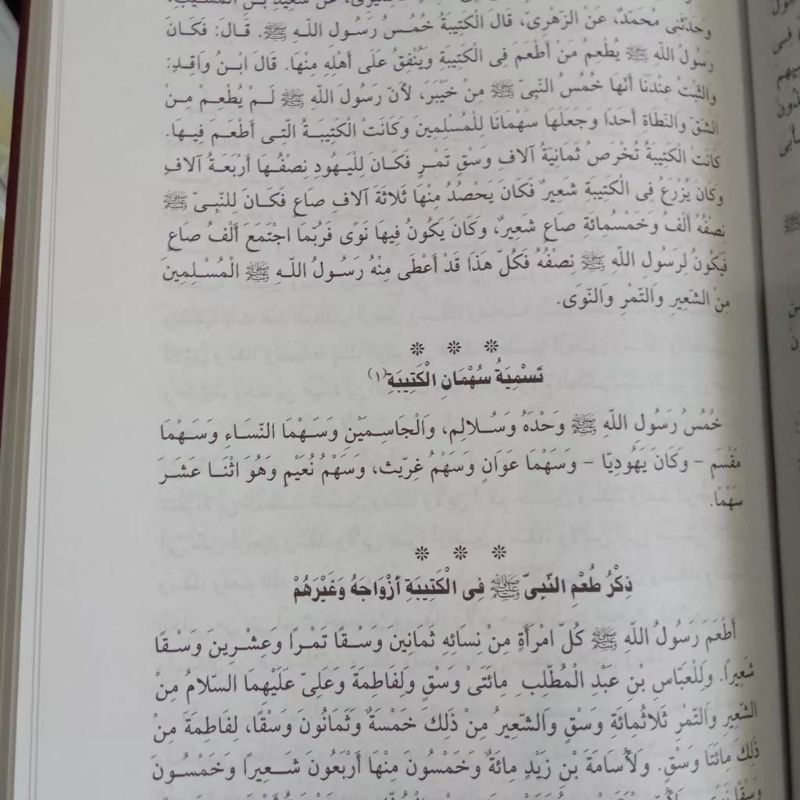 وَحَدّثَنِى مُحَمّدٌ، عَنْ الزّهْرِىّ، قَالَ الْكَتِيبَةُ خُمُسُ رَسُولِ اللّهِ ﷺ. قَالَ: فَكَانَ
رَسُولُ اللّهِ ﷺ يُطْعِمُ مَنْ أَطْعَمَ فِى الْكَتِيبَةِ وَيُنْفِقُ عَلَى أَهْلِهِ مِنْهَا. قَالَ ابْنُ وَاقِدٍ:
وَالثّبْتُ عِنْدَنَا أَنّهَا خُمُسُ النّبِىّ ﷺ مِنْ خَيْبَرَ، لأَنّ رَسُولَ اللّهِ ﷺ لَمْ يُطْعِمْ مِنْ
الشّقّ وَالنّطَاةِ أَحَدًا وَجَعَلَهَا سُهْمَانًا لِلْمُسْلِمِينَ وَكَانَتْ الْكَتِيبَةُ الّتِى أَطْعَمَ فِيهَا.
كَانَتْ الْكَتِيبَةُ تُخْرَصُ ثَمَانِيَةَ آلافِ وَسْقِ تَمْرٍ فَكَانَ لِلْيَهُودِ نِصْفُهَا أَرْبَعَةُ آلافٍ
وَكَانَ يُزْرَعُ فِى الْكَتِيبَةِ شَعِيرٌ فَكَانَ يَحْصُدُ مِنْهَا ثَلاثَةَ آلافِ صَاعٍ فَكَانَ لِلنّبِىّ ﷺ
نِصْفُهُ أَلْفٌ وَخَمْسُمِائَةِ صَاعِ شَعِيرٌ، وَكَانَ يَكُونُ فِيهَا نَوًى فَرُبّمَا اجْتَمَعَ أَلْفُ صَاعٍ
فَيَكُونُ لِرَسُولِ اللّهِ ﷺ نِصْفُهُ فَكُلّ هَذَا قَدْ أَعْطَى مِنْهُ رَسُولُ اللّهِ ﷺ الْمُسْلِمِينَ
مِنْ الشّعِيرِ وَالتّمْرِ وَالنّوَى.
تَسْمِيَةُ سُهْمَانِ الْكَتِيبَةِ(١)
خُمُسُ رَسُولِ اللّهِ ﷺ وَحْدَهُ وَسُلالِمِ، وَالْجَاسِمَيْنِ وَسَهْمَا النّسَاءِ وَسَهْمَا
مَقْسَمٍ - وَكَانَ يَهُودِيّا - وَسَهْمَا عَوَانٍ وَسَهْمُ غِرِيثٍ، وَسَهْمُ نُعَيْمٍ وَهُوَ اثْنَا عَشَرَ
سَهْمًا.
ذِكْرُ طُعْمِ النّبِىّ ﷺ فِى الْكَتِيبَةِ أَزْوَاجَهُ وَغَيْرَهُمْ
أَطْعَمَ رَسُولُ اللّهِ ﷺ كُلّ امْرَأَةٍ مِنْ نِسَائِهِ ثَمَانِينَ وَسْقًا تَمْرًا وَعِشْرِينَ وَسْقًا
شَعِيرًا. وَلِلْعَبّاسِ بْنِ عَبْدِ الْمُطّلِبِ مِائَتَىْ وَسْقٍ وَلِفَاطِمَةَ وَعَلِىّ عَلَيْهِمَا السّلامُ مِنْ
الشّعِيرِ وَالتّمْرِ ثَلاثُمِائَةِ وَسْقٍ وَالشّعِيرُ مِنْ ذَلِكَ خَمْسَةٌ وَثَمَانُونَ وَسْقًا، لِفَاطِمَةَ مِنْ
ذَلِكَ مِائَتَا وَسْقٍ. وَلأُسَامَةَ بْنِ زَيْدٍ مِائَةٌ وَخَمْسُونَ مِنْهَا أَرْبَعُونَ شَعِيرًا وَخَمْسُونَ